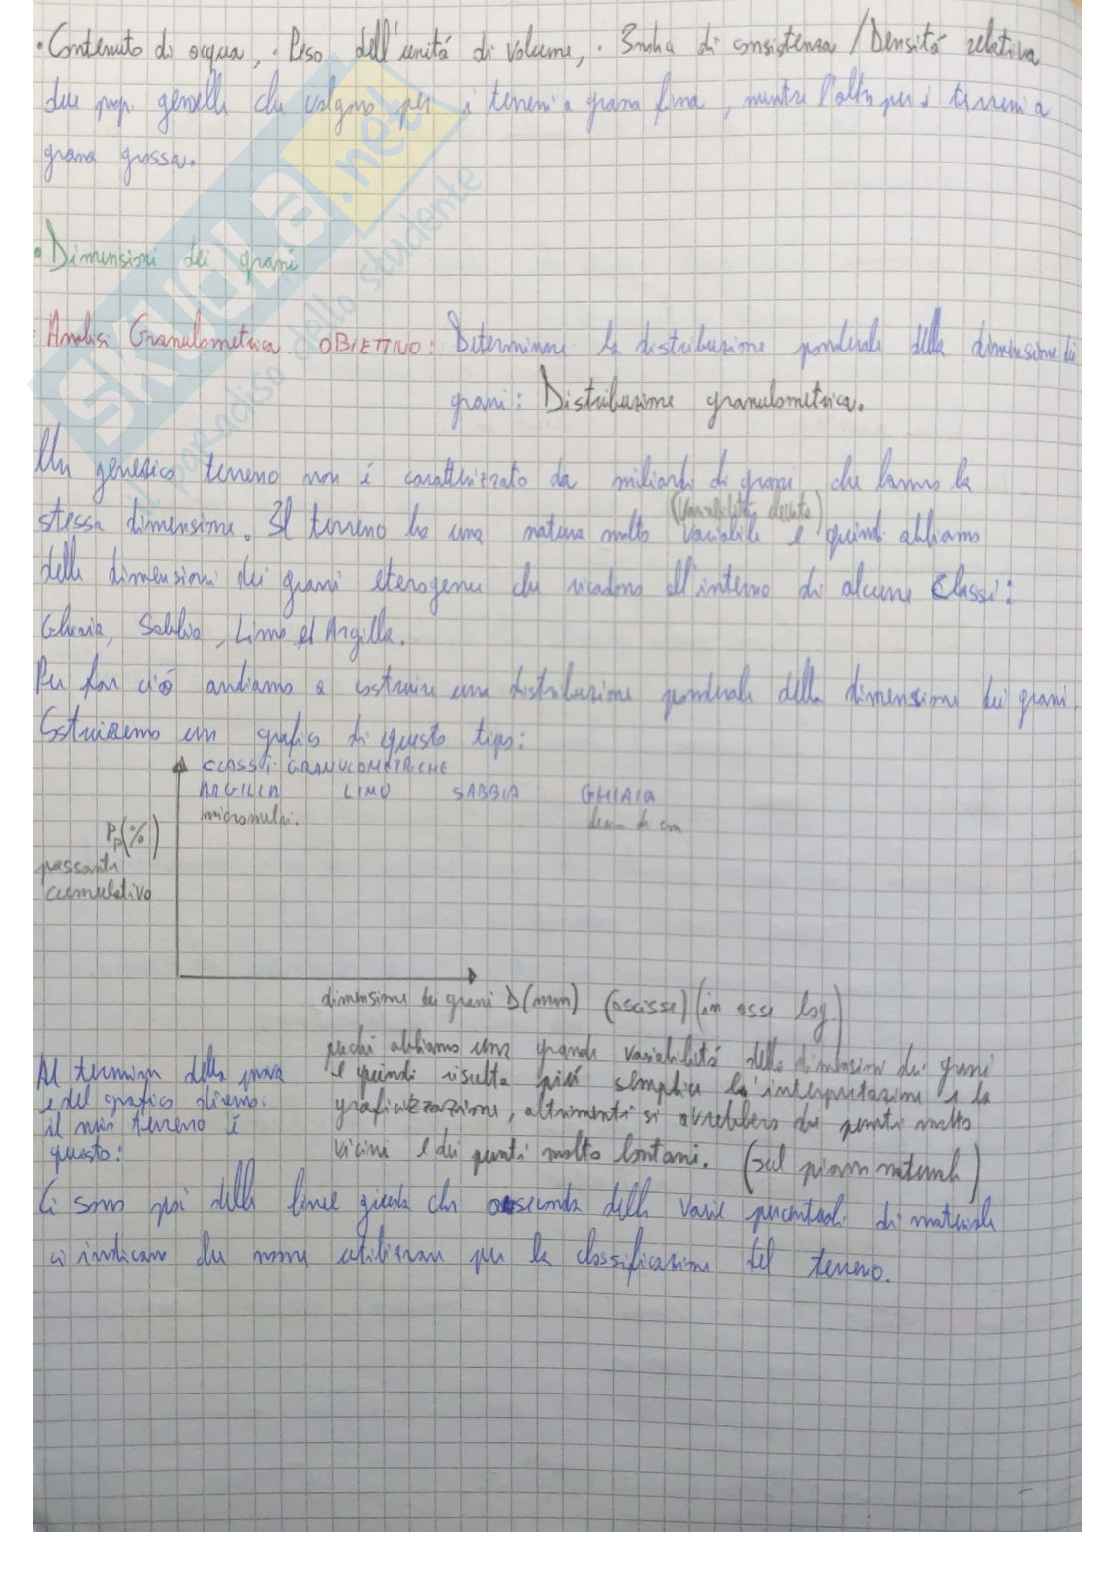 • Contenuto di acqua, • Peso dell'unità di volume, • Indice di consistenza / Densità relativa
due prop. gemelle che valgono per i terreni a grana fina, mentre l'altra per i terreni a
grana grossa.
• Dimensioni dei grani
Analisi Granulometrica OBIETTIVO: Determinare la distribuzione ponderale della dimensione dei
grani: Distribuzione granulometrica.
Un generico terreno non è caratterizzato da miliardi di grani che hanno la
stessa dimensione. Il terreno ha una natura molto variabile e quindi abbiamo
(variabilità elevata)
delle dimensioni dei grani eterogenee che ricadono all'interno di alcune Classi:
Ghiaia, Sabbia, Limo ed Argilla.
Per far ciò andiamo a costruire una distribuzione ponderale della dimensione dei grani.
Costruiremo un grafico di questo tipo:
CLASSI GRANULOMETRICHE
ARGILLA LIMO SABBIA GHIAIA
micrometri. decine di cm
Pp(%)
passante
cumulativo
dimensione dei grani D(mm) (ascisse) (in asse log)
perché abbiamo una grande variabilità delle dimensioni dei grani
e quindi risulta più semplice la interpretazione e la
graficizzazione, altrimenti si avrebbero dei punti molto
vicini e dei punti molto lontani. (sul piano naturale)
Al termine della prova
e del grafico diremo:
il mio terreno è
questo:
Ci sono poi delle linee guida che a seconda delle varie percentuali di materiale
ci indicano che nome utilizzare per la classificazione del terreno.
SKUOLA.net
il paradiso dello studente